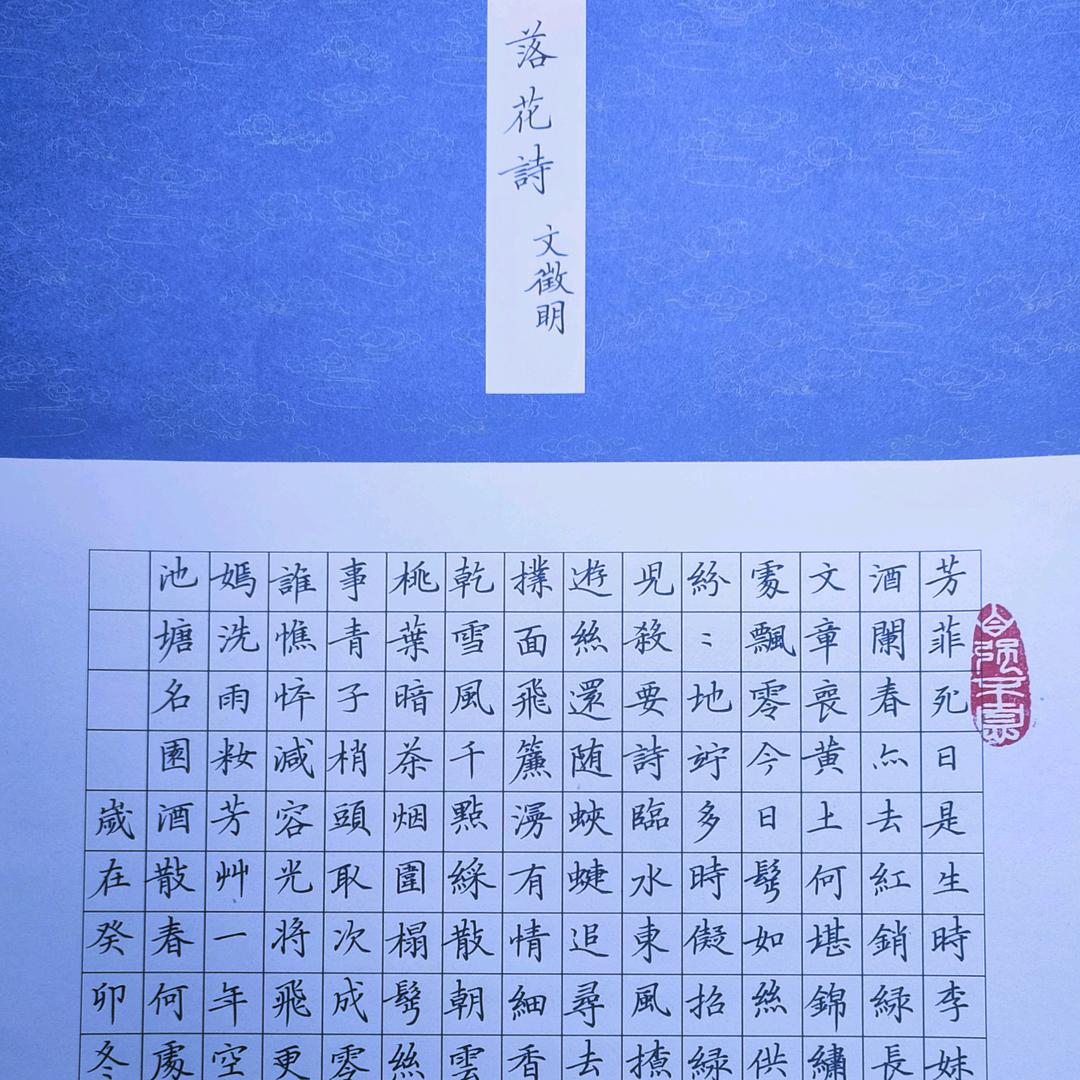 落花詩
文徵明
芳菲死日是生時李妹
酒闌春亦去紅銷綠長
文章喪黃土何堪錦繡
處飄零今日鬂如絲供
紛〻地竚多時儗招綠
児殺要詩臨水東風撩
遊絲還随蛺蜨追尋去
撲面飛簾漫有情細香
乾雪風千點綵散朝雲
桃葉暗茶烟圍榻鬂絲
事青子梢頭取次成零
誰憔悴減容光將飛更
嫣洗雨粧芳艸一年空
池塘名園酒散春何處
歲在癸卯冬